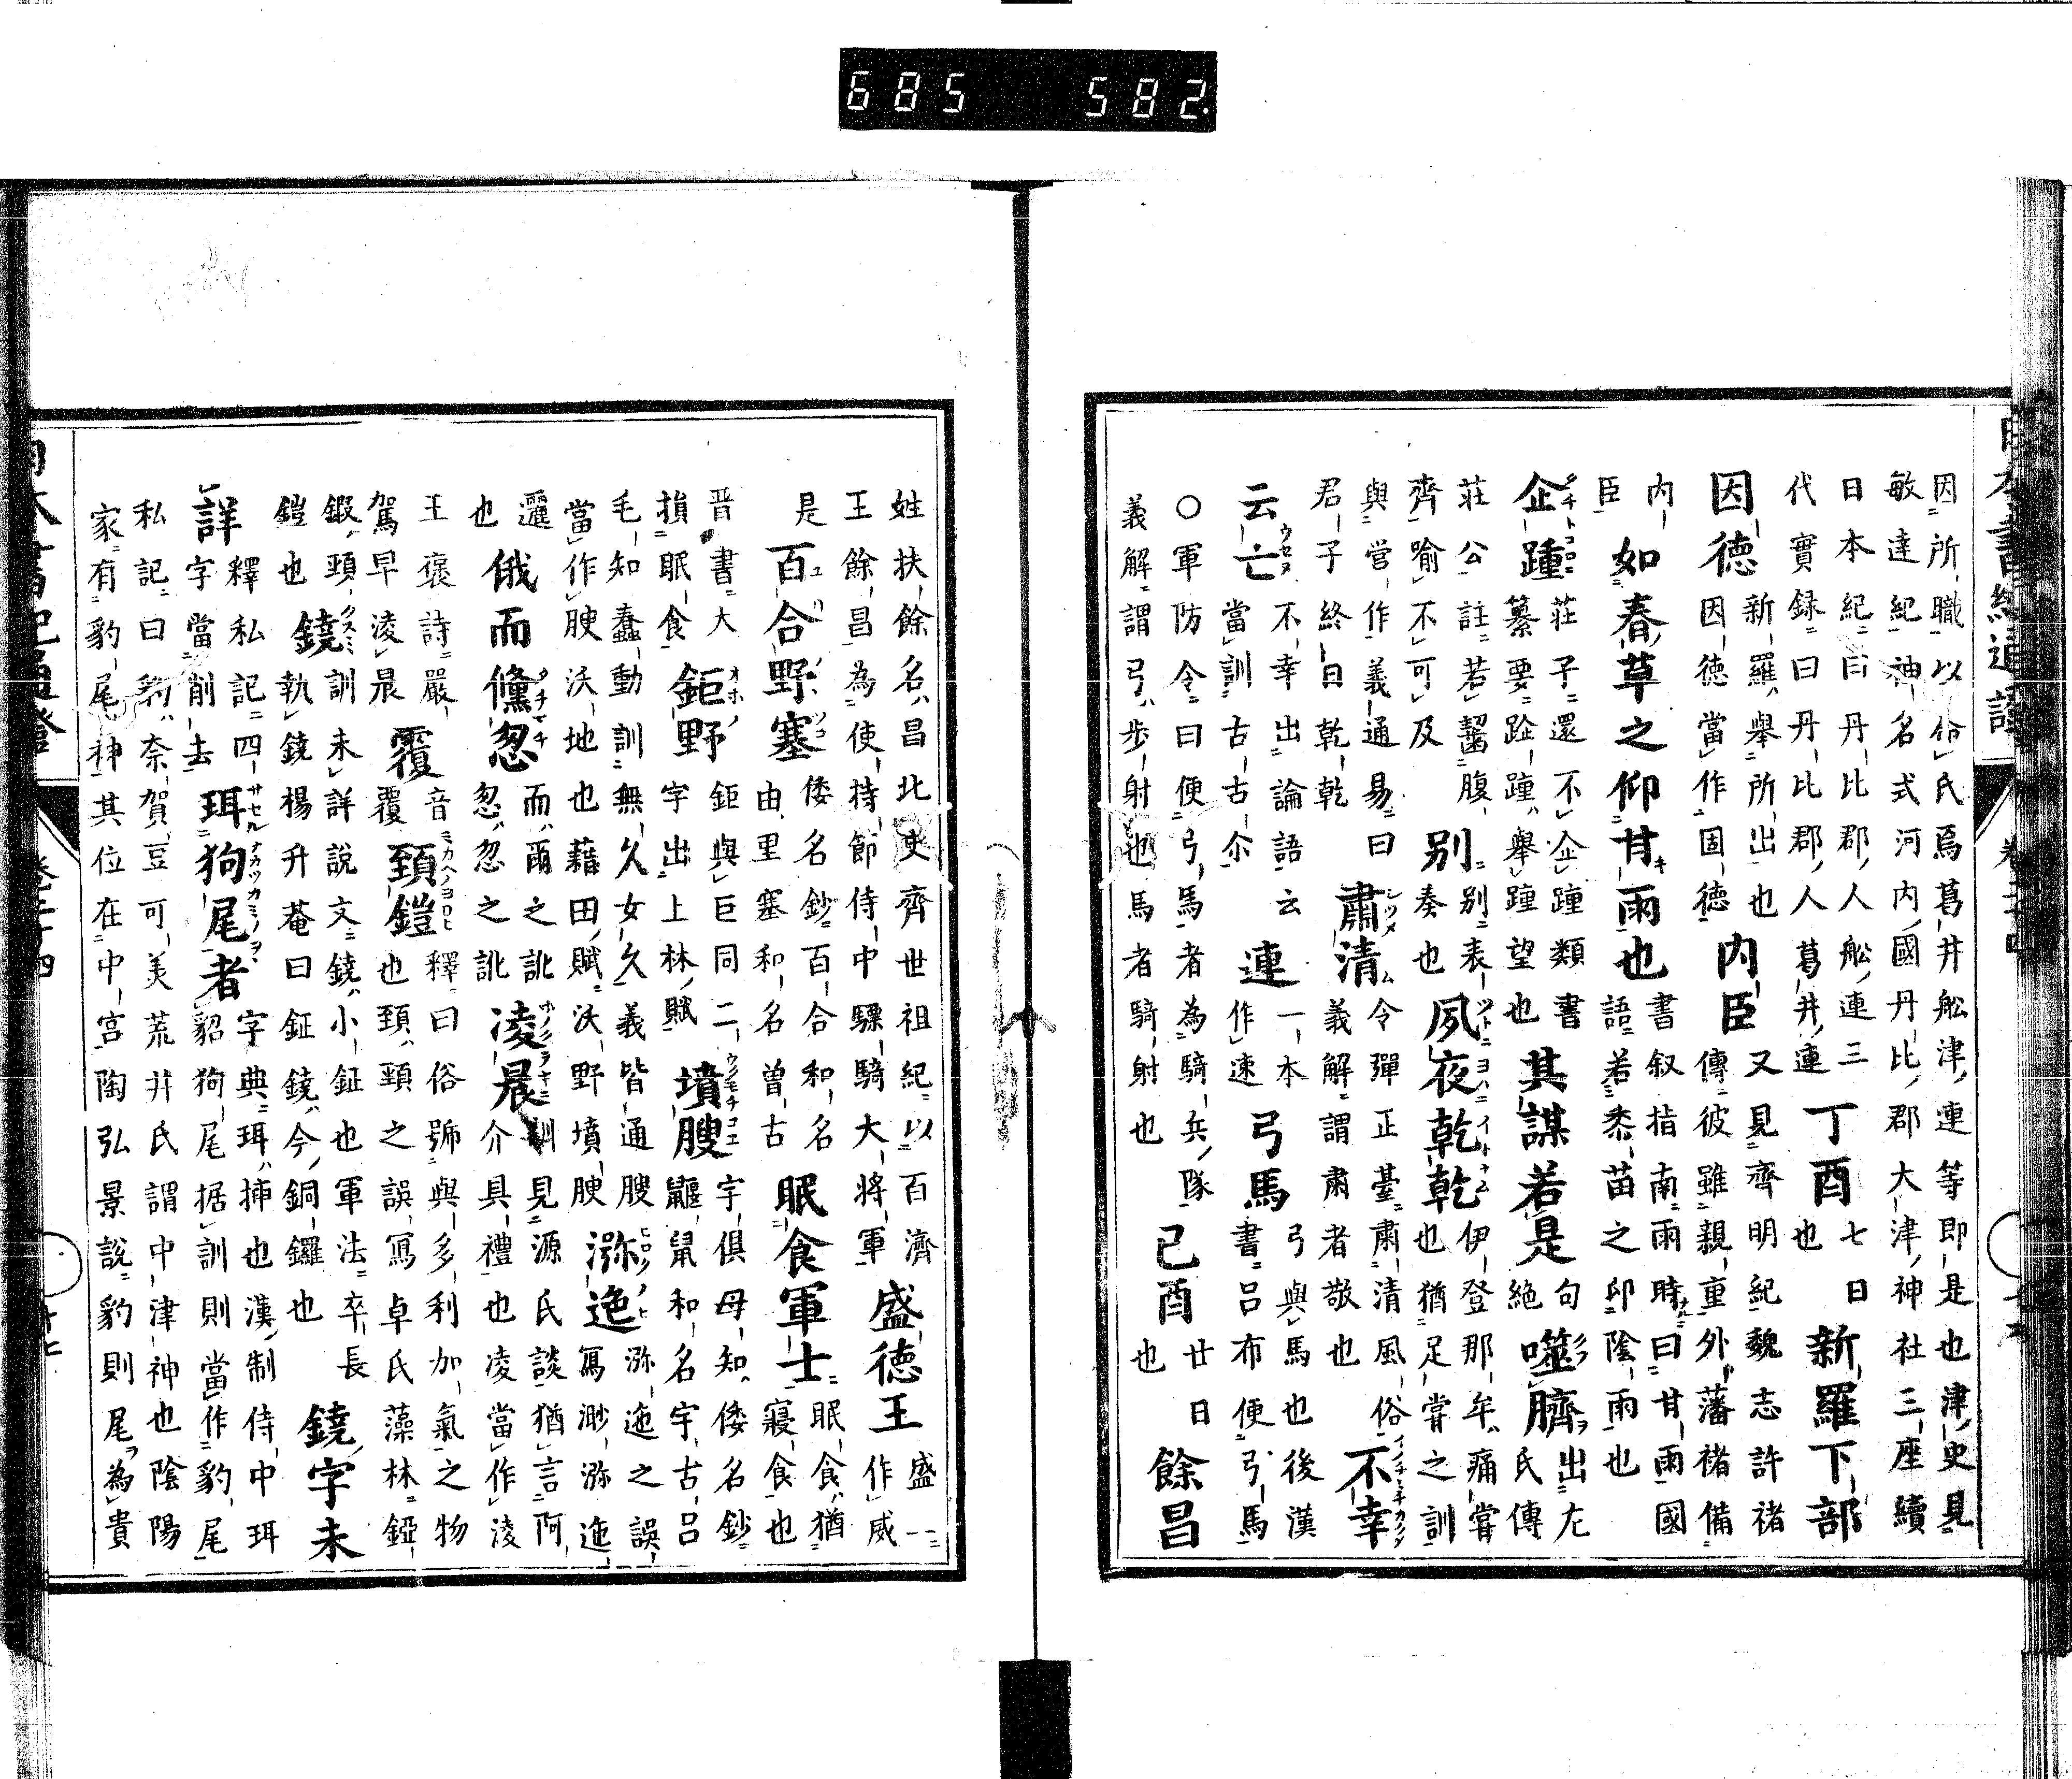 因所職以命氏焉葛井舩津連等即是也津史見
敏達紀神名式河内國丹比郡大津神社三座續
日本紀曰丹比郡人舩連三
代實録曰丹比郡人葛井連
丁酉 七日也 新羅下部
因徳 新羅舉所出也因徳當作固徳 内臣 又見齊明紀魏志許禇傳彼雖親重外藩禇備
内臣 如春草之仰甘雨也 書叙指南雨時曰甘雨國語若黍苗之卬陰雨也
企踵 莊子還不企踵類書纂要跂踵舉踵望也 其謀若是 句絶 噬臍 出左氏傳
莊公註若齧腹齊喻不可及 別 別表奏也 夙夜乾乾 伊登那牟痛甞也猶足甞之訓
與営作義通易曰君子終日乾乾 肅清 令彈正臺肅清風俗義解謂肅者敬也 不幸
云亡 不幸出論語云當訓古古尒 連 一本作速 弓馬 弓與馬也後漢書呂布便弓馬
○軍防令曰便弓馬者為騎兵隊義解謂弓步射也馬者騎射也 己酉 廿日也 餘昌
姓扶餘名昌北史齊世祖紀以百濟王餘昌為使持節侍中驃騎大將軍 盛徳王 盛一作威
是 百合野塞 倭名鈔百合和名由里塞和名曽古 眠食軍士 眠食猶寢食也
晉書大損眠食 鉅野 鉅與巨同二字出上林賦 墳腠 宇俱母知倭名鈔鼴鼠和名宇古呂
毛知蠢動訓無久女久義皆通腠當作腴沃地也藉田賦沃野墳腴 瀰迤 瀰迤之誤寫渺瀰迤
邐也 俄而儵忽 而爾之訛忽忽之訛 凌晨 訓見源氏談猶言阿介具禮也凌當作淩
王褒詩嚴駕早淩晨 覆 音覆 頸鎧 釋曰俗號與多利加氣之物也頚頸之誤寫卓氏藻林錏
鍜頸鎧也 鐃 訓未詳說文鐃小鉦也軍法卒長執鐃楊升菴曰鉦鐃今銅鑼也 鐃字未
詳 釋私記四字當削去 珥狗尾者 字典珥揷也漢制侍中珥貂狗尾据訓則當作豹尾
私記曰豹奈賀豆可美荒井氏謂中津神也陰陽
家有豹尾神其位在中宮陶弘景說豹則尾為貴